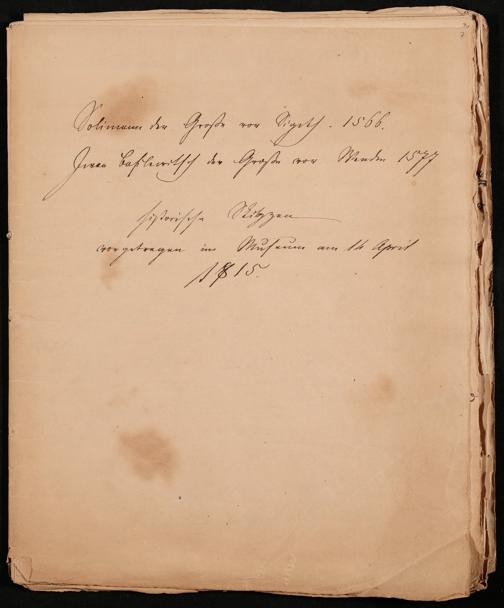 Solimann der Große vor Sigeth. 1566.
Iwan Baßlewitsch der Große vor Wenden 1577
historische Skizzen
vorgetragen im Museum am 14 April
1815.